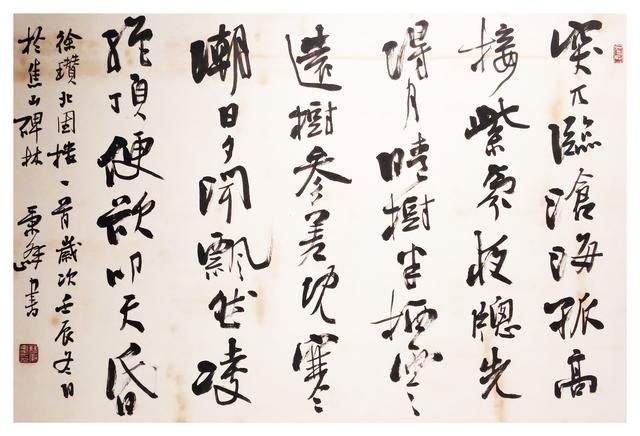 突兀臨滄海孤高
接紫雰夜牕先
得月晴樹半栖雲
遠樹參差現寒
潮日夕聞飄然凌
絕頂便欲叩天昏
徐瓚北固樓一首歲次壬辰冬日
於焦山碑林 書